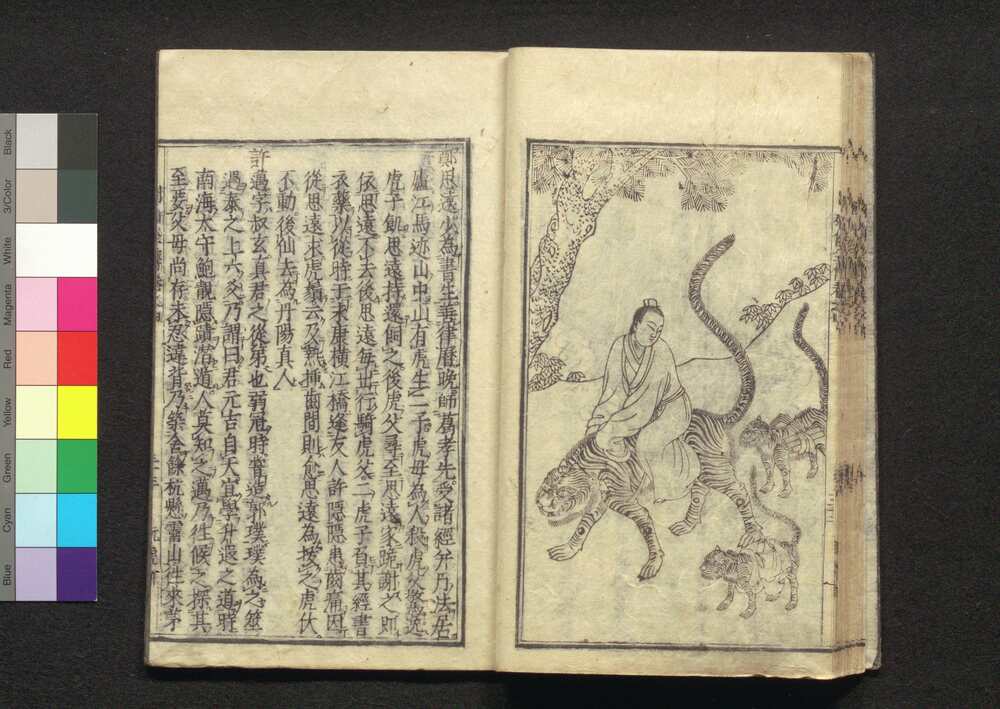 鄭思遠少為書生善律曆晚師葛孝先受諸經并丹法居
廬江馬迹山中山有虎生二子虎母為人殺虎父驚逸
虎子飢思遠持還飼之後虎父尋至思遠家跪謝之即
依思遠不去後思遠每出行騎虎父二虎子負其經書
衣藥以從時于永康橫江橋逢友人許隱隱患齒痛因
從思遠求虎鬚云及熱插齒間則愈思遠為拔之虎伏
不動後仙去為丹陽真人
許邁字叔玄真君之從弟也弱冠時嘗造郭璞璞為之筮
遇泰之上六爻乃謂曰君元吉自天宜學升遐之道時
南海太守鮑靚隱蹟潛遁人莫知之邁乃往候之探其
至要父母尚存未忍違背乃築舍餘杭懸霤山往來茅
Black
3/Color
White
Magenta
Red
Yellow
Green
Cyan
Blue